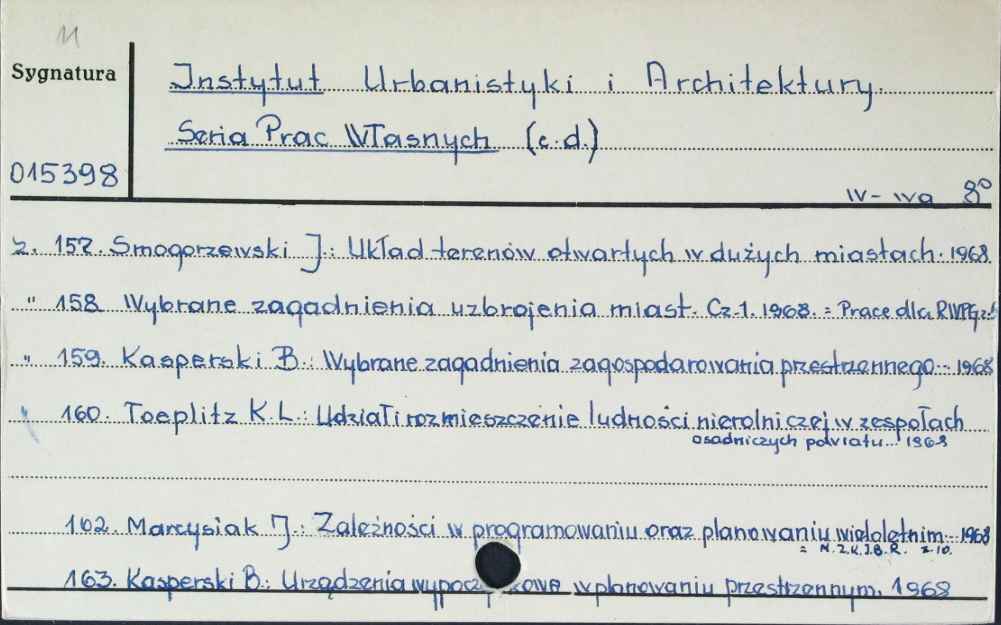 11
Sygnatura
Instytut Urbanistyki i Architektury.
Seria Prac Własnych (c.d.)
015398
W-wa 8°
z. 157. Smogorzewski J.: Układ terenów otwartych w dużych miastach. 1968.
" 158. Wybrane zagadnienia uzbrojenia miast. Cz.1. 1968. = Prace dla RWPG
" 159. Kasperski B.: Wybrane zagadnienia zagospodarowania przestrzennego. 1968
160. Toeplitz K.L.: Udział i rozmieszczenie ludności nierolniczej w zespołach
osadniczych powiatu. 1968
162. Marcysiak J.: Zależności w programowaniu oraz planowaniu wieloletnim. 1968
= N.I.K.I.B.R. z. 10.
163. Kasperski B.: Urządzenia w planowaniu przestrzennym. 1968